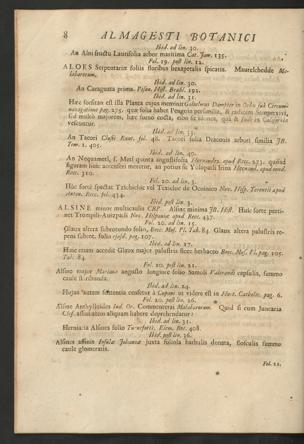 8 ALMAGESTI BOTANICI
Ibid. ad lin. 30.
An Alni fructu Laurifolia arbor maritima Cat. Jam. 135.
Fol. 19. post lin. 12.
ALOES Serpentariæ foliis floribus hexapetalis spicatis. Maurelschedde Ma-
labarorum.
Ibid. ad lin. 30.
An Caraguata prima. Pison. Hist. Brasil. 192.
Ibid. ad lin. 31.
Hæc forsitan est illa Planta cujus meminit Gulielmus Dampier in
navigatione pag. 275. quæ folia habet Penguin persimilia, & radicem Sempervivi,
sed multo majorem, hæc fueno cocta,
vescuntur.
Ibid. ad lin. 33.
An Tacori Clusii Raut. fol. 48. Tacori folia Draconis arbori similia JB.
Tom. 1. 405.
Ibid. ad lin. 40.
An Nequameti, s. Metl quinta angustifolia Hernandez. apud Recc. 273. quando
figuram huic accensest meretur, an potius
Recc. 310.
Fol. 20. ad lin. 3.
Huc forte spectat
anton. Recc. fol. 434.
Ibid. post lin. 3.
ALSINE minor multicaulis CBP. Alsine minima JB. Hist. Huic forte perti-
net Nov. Hispaniæ apud Recc. 437.
Fol. 20. ad lin. 15.
Glaux altera subrotundo folio, Bocc. Mus. Pl. Tab. 84. Glaux altera palustris re-
pens subrot. folio ejusd. pag. 107.
Ibid. ad lin. 27.
Huic etiam accedit Glaux major palustris flore herbaceo Bocc. Mus. Pl. pag. 105.
Tab. 84.
Fol. 20. post lin. 21.
Alsine major Mariana angusto longiore folio Samoli Valerandi capsulis, summo
caule
Ibid. ad lin. 24.
Hujus autem sententiæ censetur à Cupani ut videre est in Hort. Catholic. pag. 6.
Fol. 20. post lin. 36.
Alsine Anthylloides Ind. Or. Commentitas Malabarorum. Quid si cum Juncaria
Clus. affinitatem aliquam habere deprehendatur?
Ibid. ad lin. 31.
Herniaria Alsines folio Tournefortii. Elem. Bot. 408.
Ibid. post lin. 36.
Alsines affinis Insulæ Johannæ juxta foliola barbulis donata, flosculis summo
caule glomeratis.
Fol. 21.